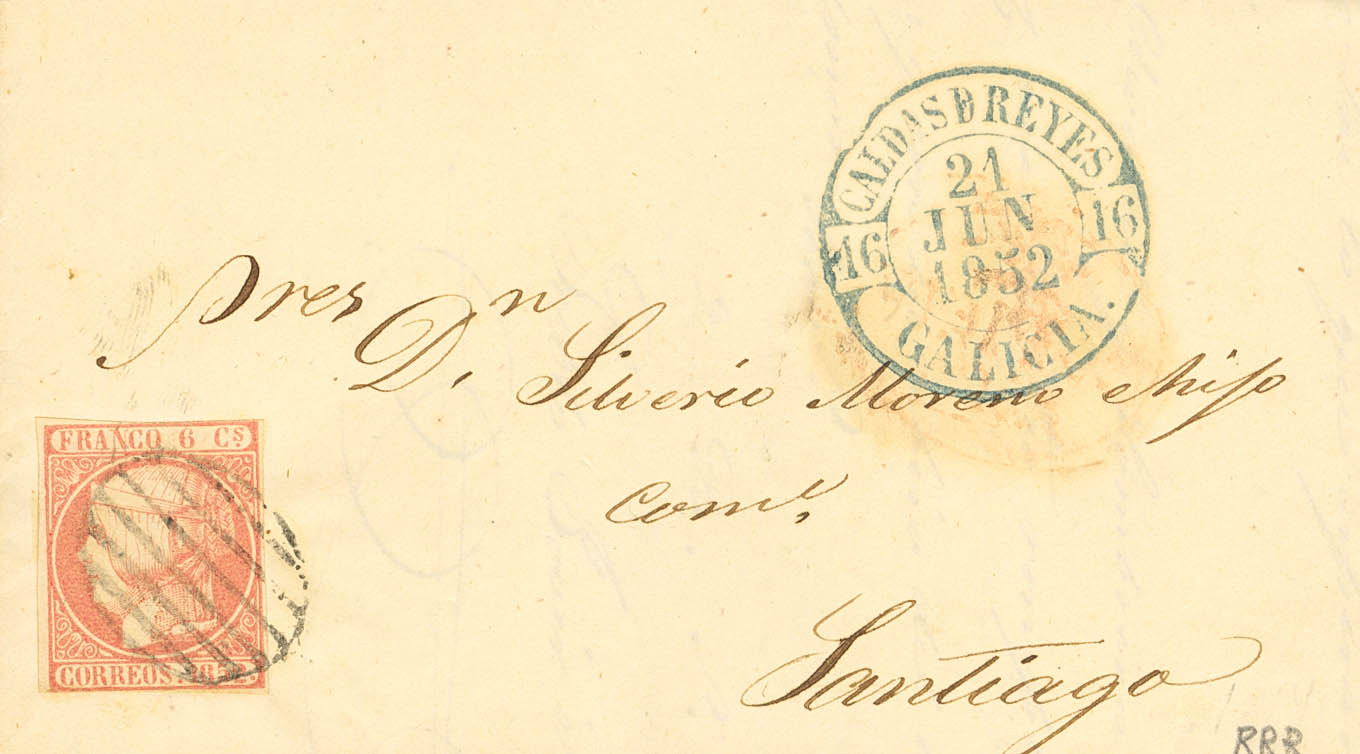 CALDAS D REYES
21
JUN
1852
16 16
GALICIA.
Sres
Dn Silverio Moreno Hijo
Como
Santiago
FRANCO 6 Cs
CORREOS 1852.